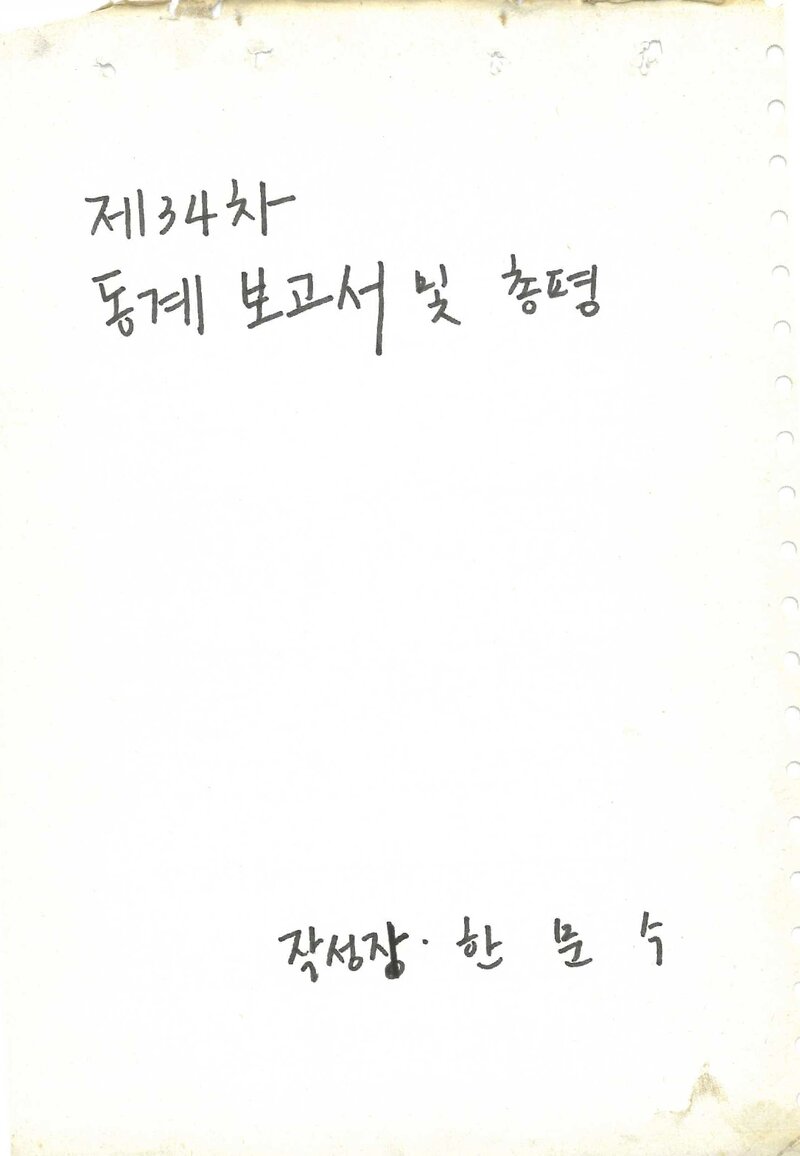 제34차
동계 보고서 및 총평
작성장 · 한 문 수